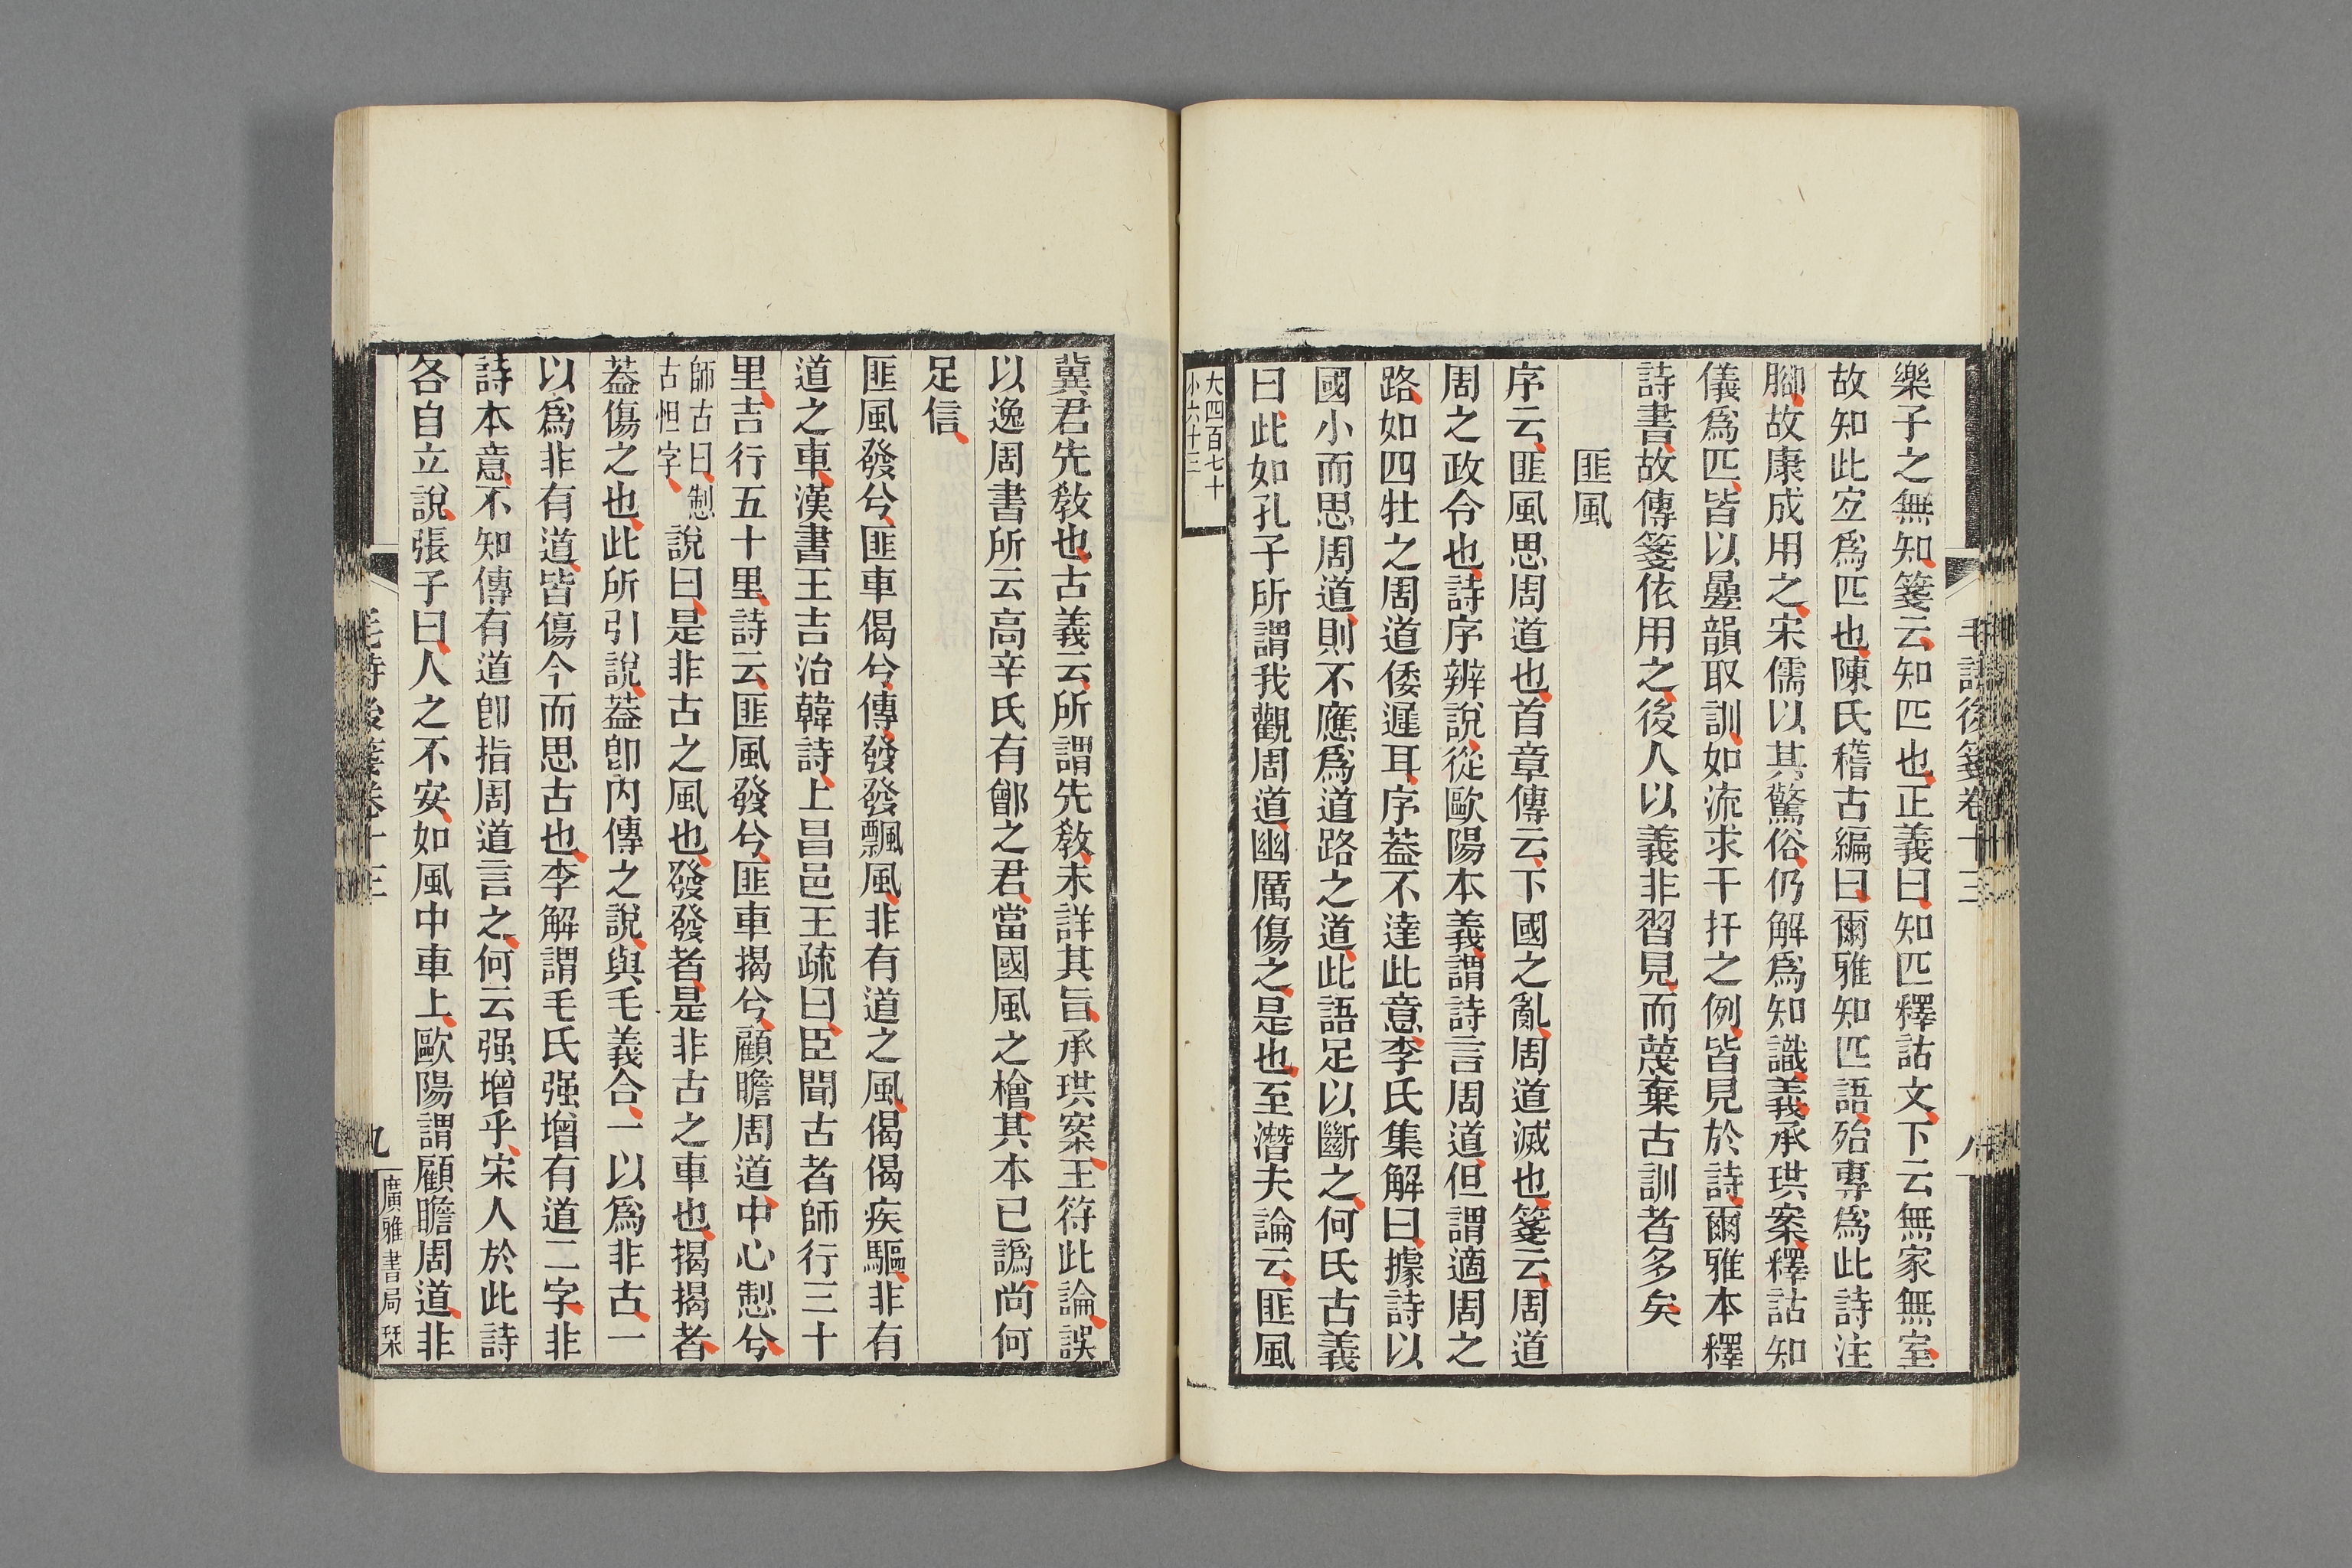 毛詩後箋卷十三
八
樂子之無知箋云知匹也正義曰知匹釋詁文下云無家無室
故知此宐爲匹也陳氏稽古編曰爾雅知匹語殆專爲此詩注
腳故康成用之宋儒以其驚俗仍解爲知識義承珙案釋詁知
儀爲匹皆以曡韻取訓如流求干扞之例皆見於詩爾雅本釋
詩書故傳箋依用之後人以義非習見而蔑棄古訓者多矣
匪風
序云匪風思周道也首章傳云下國之亂周道滅也箋云周道
周之政令也詩序辨說從歐陽本義謂詩言周道但謂適周之
路如四牡之周道倭遲耳序葢不達此意李氏集解曰據詩以
國小而思周道則不應爲道路之道此語足以斷之何氏古義
曰此如孔子所謂我觀周道幽厲傷之是也至潛夫論云匪風
大四百七十
小六十三
冀君先敎也古義云所謂先敎未詳其旨承珙案王符此論誤
以逸周書所云高辛氏有鄶之君當國風之檜其本已譌尚何
足信
匪風發兮匪車偈兮傳發發飄風非有道之風偈偈疾驅非有
道之車漢書王吉治韓詩上昌邑王疏曰臣聞古者師行三十
里吉行五十里詩云匪風發兮匪車揭兮顧瞻周道中心㤠兮
師古曰㤠
古怛字
說曰是非古之風也發發者是非古之車也揭揭者
葢傷之也此所引說葢卽內傳之說與毛義合一以爲非古一
以爲非有道皆傷今而思古也李解謂毛氏强增有道二字非
詩本意不知傳有道卽指周道言之何云强增乎宋人於此詩
各自立說張子曰人之不安如風中車上歐陽謂顧瞻周道非
毛詩後箋卷十三
九
廣雅書局栞